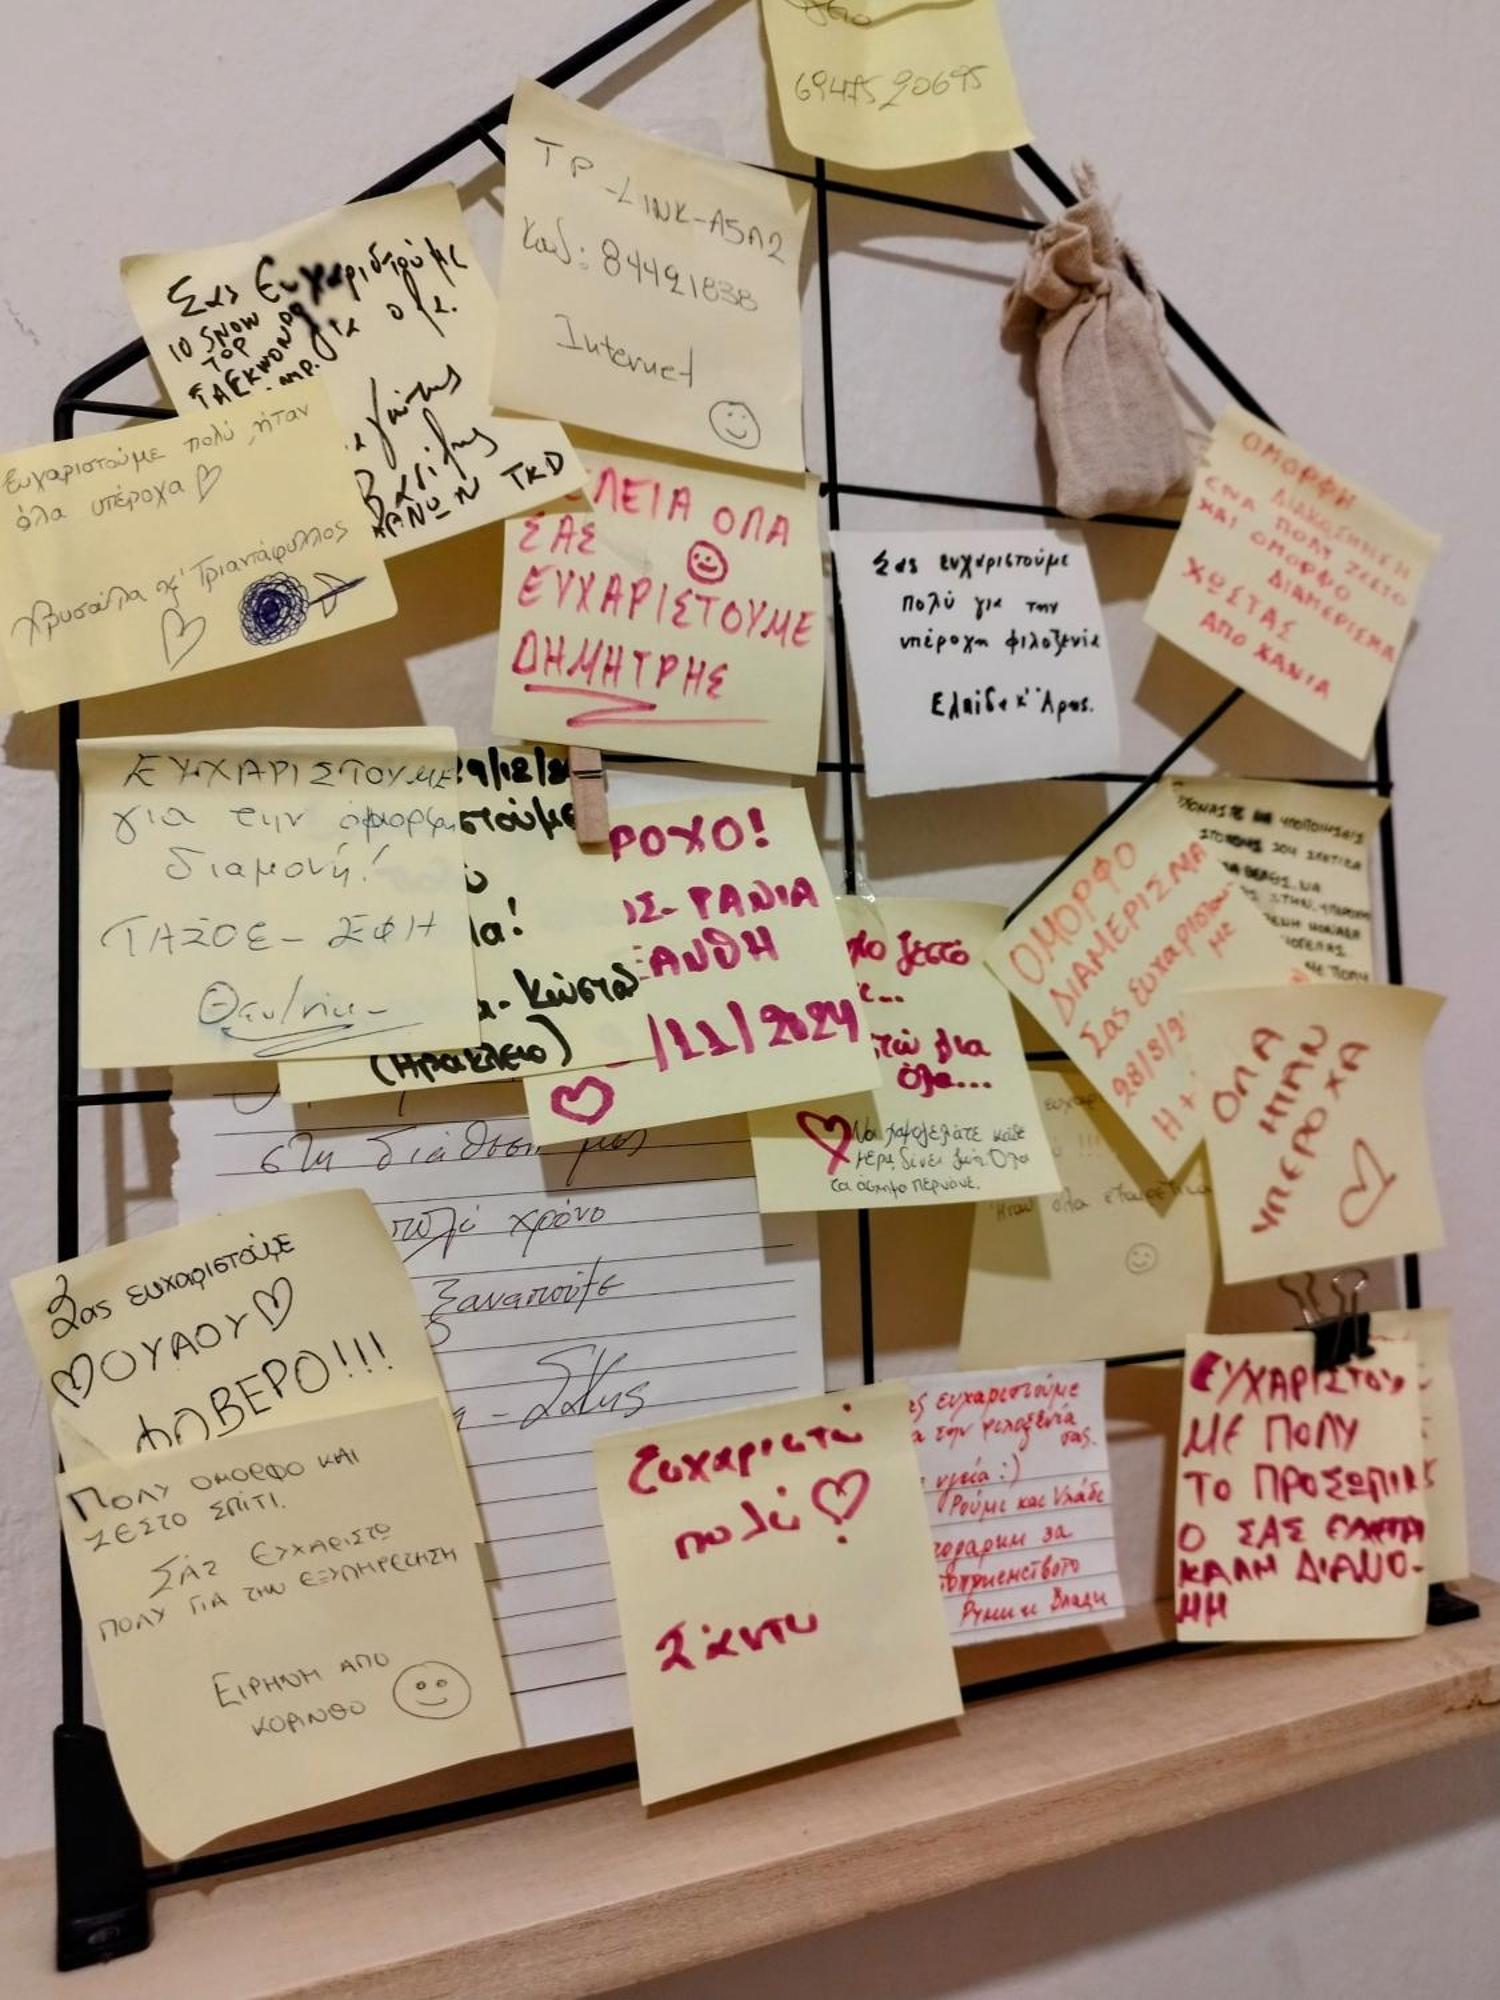 6947520695
TP-LINK-A5A2
Κωδ: 84491838
Internet
Σας Ευχαριστούμε
για όλα.
10 SNOW
TOP
TAEKWONDO
TKD
Ευχαριστούμε πολύ, ήταν
όλα υπέροχα
Χρυσούλα κ' Τριαντάφυλλος
ΛΕΙΑ ΟΛΑ
ΣΑΣ
ΕΥΧΑΡΙΣΤΟΥΜΕ
ΔΗΜΗΤΡΗΣ
Σας ευχαριστούμε
πολύ για την
υπέροχη φιλοξενία
Ελπίδα κ' Άρης.
ΟΜΟΡΦΗ
ΔΙΑΚΟΣΜΗΣΗ
ΕΝΑ ΠΟΛΥ ΖΕΣΤΟ
ΚΑΙ ΟΜΟΡΦΟ
ΔΙΑΜΕΡΙΣΜΑ
ΧΩΣΤΑΣ
ΑΠΟ ΧΑΝΙΑ
ΕΥΧΑΡΙΣΤΟΥΜΕ
για την όμορφη
διαμονή!
ΤΑΣΟΣ - ΣΦΗ
Θεσ/νίκη
9/12/2
στούμε
ύ
λα!
α- Κώστας
(Ηράκλειο)
ΡΟΧΟ!
ΙΣ- ΡΑΝΙΑ
ΞΑΝΘΗ
/11/2024
λο ζεστό
ε...
στώ για
όλα...
Να χαμογελάτε κάθε
μέρα, δίνει ζωή. Όλα
τα άσχημα περνάνε.
ΟΜΟΡΦΟ
ΔΙΑΜΕΡΙΣΜΑ
Σας ευχαριστού
με
28/8/2
Η +
ΝΑ
ΟΛΑ
ΗΤΑΝ
ΥΠΕΡΟΧΑ
ευχαρ
ύ !!!
Ήταν όλα εξαιρετικά
στη διάθεση μας
πολύ χρόνο
ξαναπούμε
Σάκης
Σας ευχαριστούμε
ΟΥΑΟΥ
ΦΟΒΕΡΟ!!!
ΠΟΛΥ ΟΜΟΡΦΟ ΚΑΙ
ΖΕΣΤΟ ΣΠΙΤΙ.
ΣΑΣ ΕΥΧΑΡΙΣΤΩ
ΠΟΛΥ ΓΙΑ ΤΗΝ ΕΞΥΠΗΡΕΤΗΣΗ
ΕΙΡΗΝΗ ΑΠΟ
ΚΟΡΙΝΘΟ
Ευχαριστώ
πολύ
Σάντυ
ς ευχαριστούμε
α την φιλοξενία
σας.
υγεία :)
Ρούμι και Υλάδε
годарим за
гоприемството
Руми и Влади
ΕΥΧΑΡΙΣΤΟΥ
ΜΕ ΠΟΛΥ
ΤΟ ΠΡΟΣΩΠΙΚ
Ο ΣΑΣ
ΚΑΛΗ ΔΙΑΝΟ-
ΜΗ